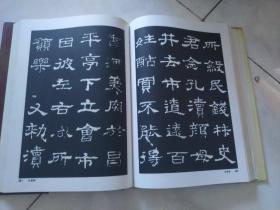 所歛民錢材史
君念孔瀆顏母
井去市遼遠百
姓酤買不能得
香酒美肉於昌
平亭下立會市
因彼左右咸所
願樂 又勑瀆